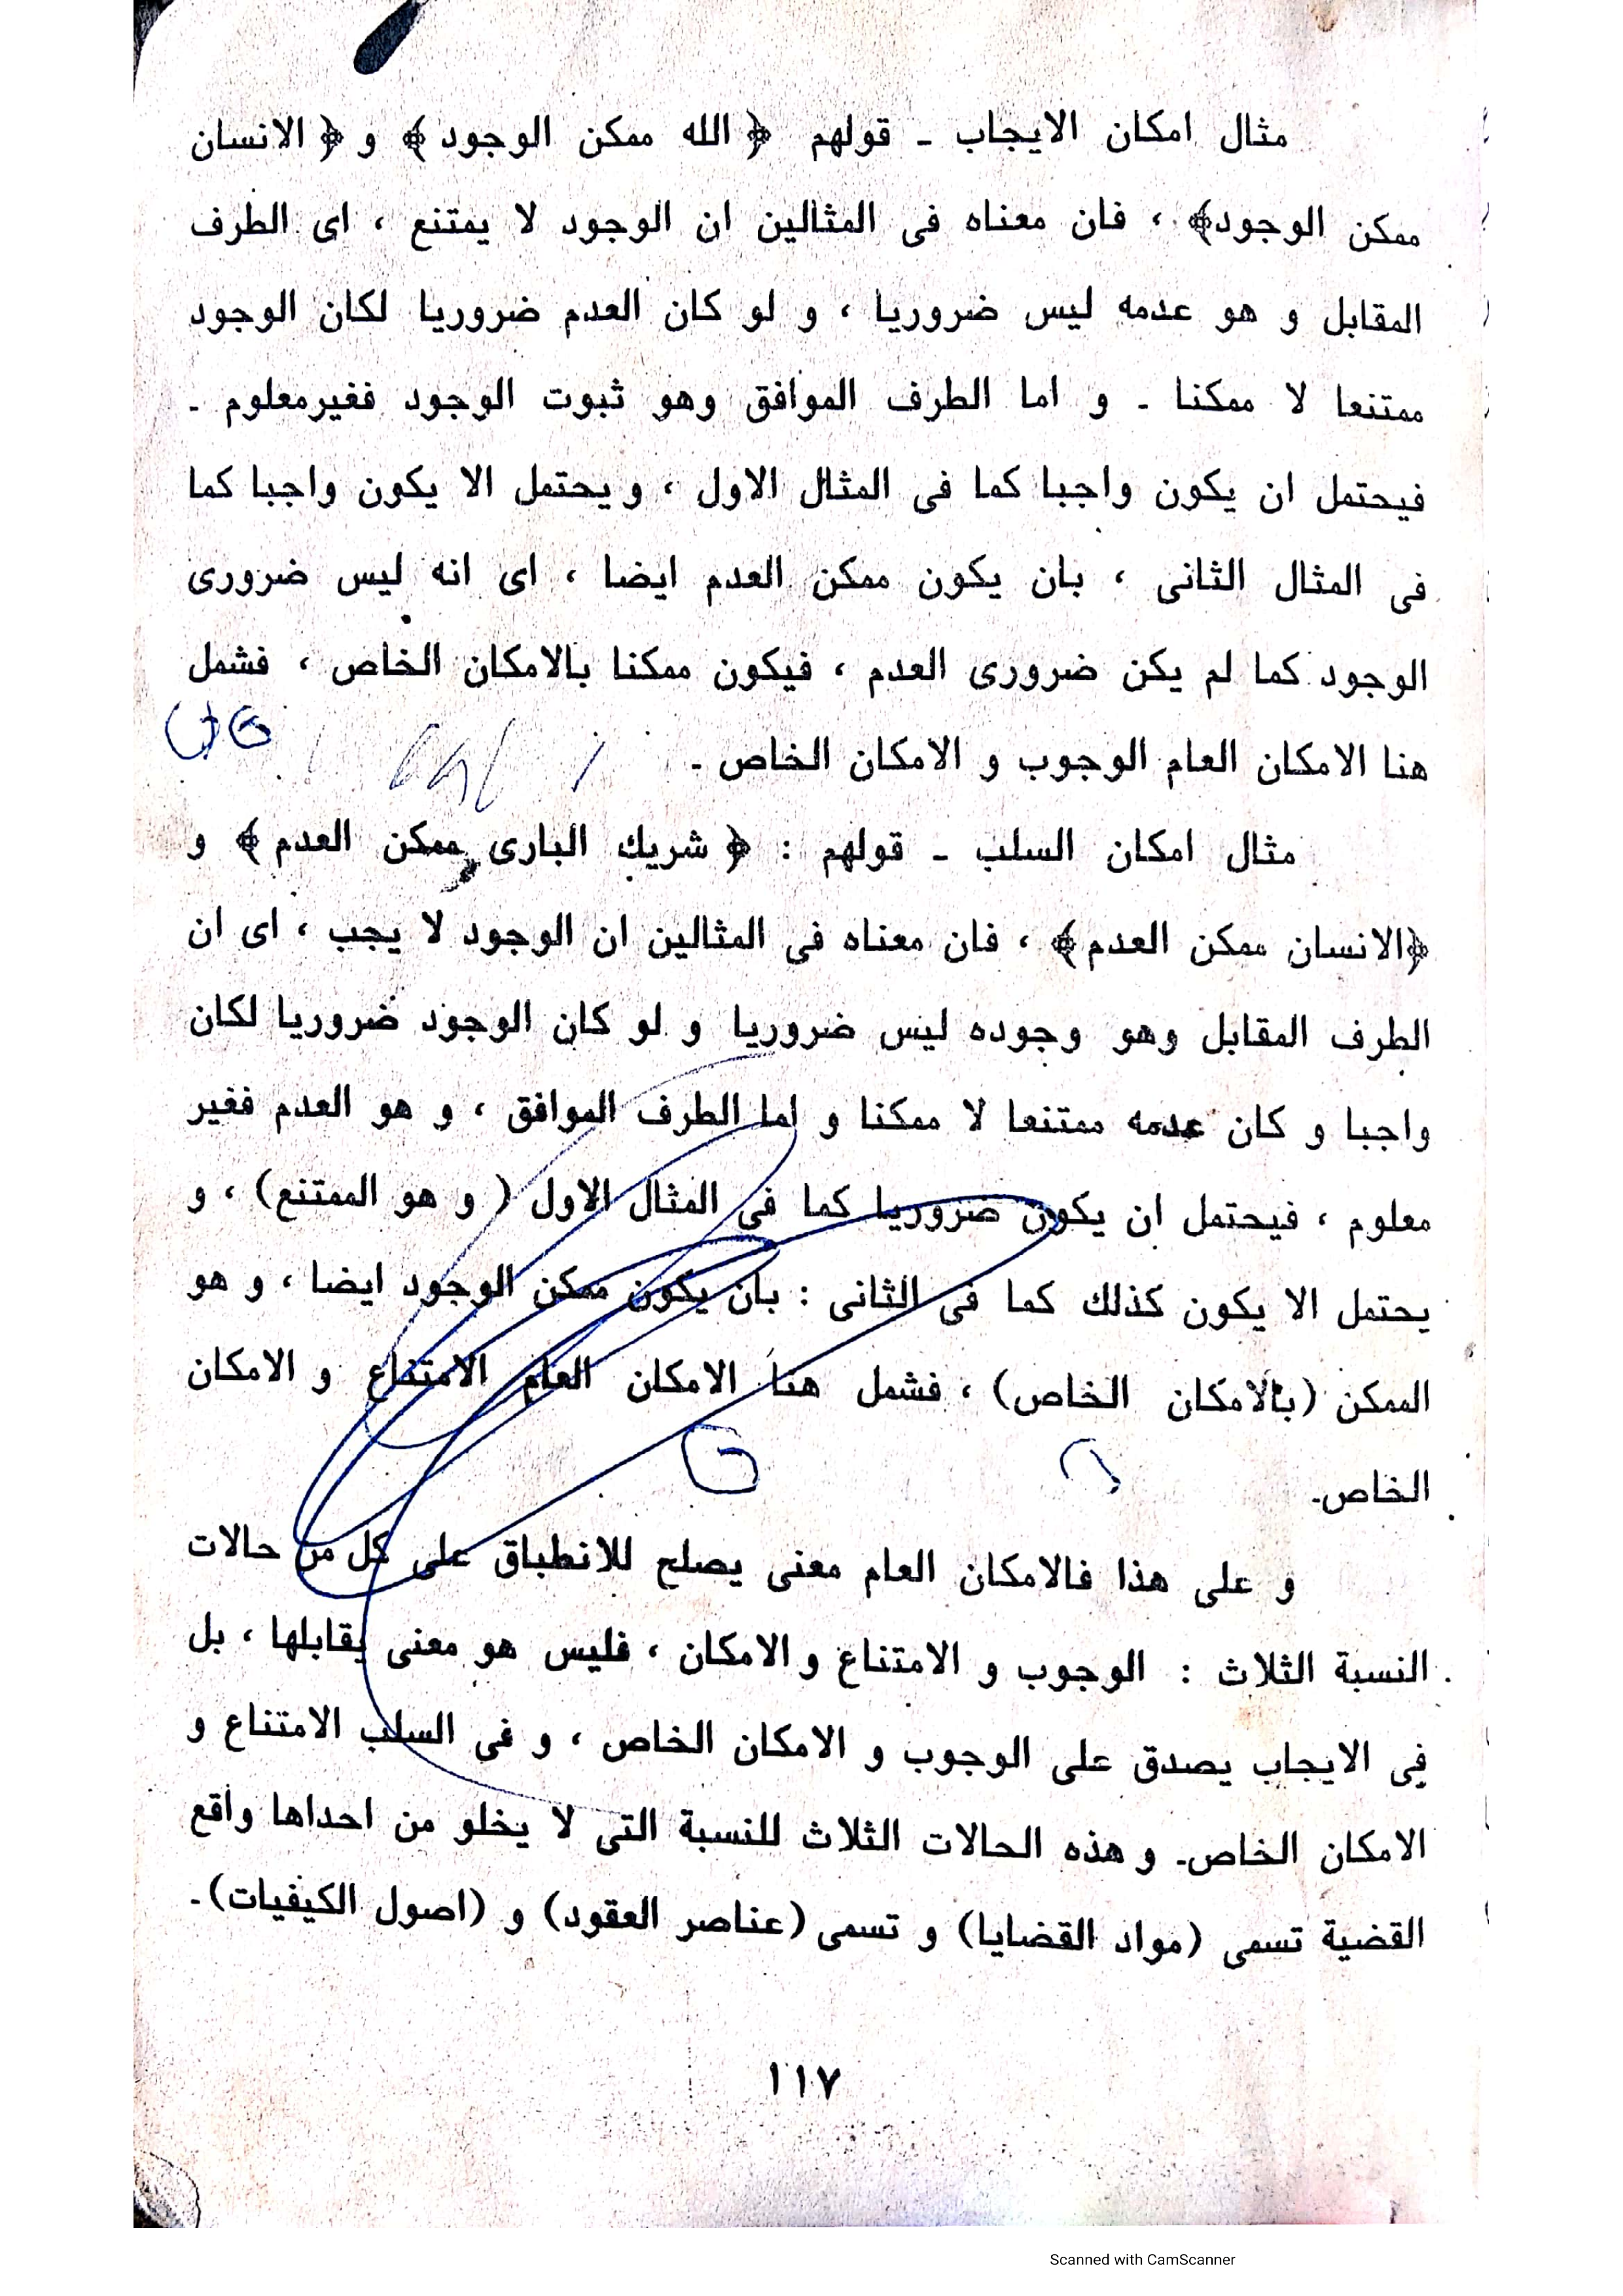 مثال امكان الايجاب - قولهم ﴿ الله ممكن الوجود ﴾ و ﴿ الانسان
ممكن الوجود﴾ ، فان معناه فى المثالين ان الوجود لا يمتنع ، اى الطرف
المقابل و هو عدمه ليس ضروريا ، و لو كان العدم ضروريا لكان الوجود
ممتنعا لا ممكنا - و اما الطرف الموافق وهو ثبوت الوجود فغيرمعلوم -
فيحتمل ان يكون واجبا كما فى المثال الاول ، و يحتمل الا يكون واجبا كما
فى المثال الثانى ، بان يكون ممكن العدم ايضا ، اى انه ليس ضرورى
الوجود كما لم يكن ضرورى العدم ، فيكون ممكنا بالامكان الخاص ، فشمل
هنا الامكان العام الوجوب و الامكان الخاص -
مثال امكان السلب - قولهم : ﴿ شريك البارى ممكن العدم ﴾ و
﴿الانسان ممكن العدم ﴾ ، فان معناه فى المثالين ان الوجود لا يجب ، اى ان
الطرف المقابل وهو وجوده ليس ضروريا و لو كان الوجود ضروريا لكان
واجبا و كان عدمه ممتنعا لا ممكنا و اما الطرف الموافق ، و هو العدم فغير
معلوم ، فيحتمل ان يكون ضروريا كما فى المثال الاول ( و هو الممتنع) ، و
يحتمل الا يكون كذلك كما فى الثانى : بان يكون ممكن الوجود ايضا ، و هو
الممكن (بالامكان الخاص) ، فشمل هنا الامكان العام الامتناع و الامكان
الخاص-
و على هذا فالامكان العام معنى يصلح للانطباق على كل من حالات
النسبة الثلاث : الوجوب و الامتناع و الامكان ، فليس هو معنى يقابلها ، بل
فى الايجاب يصدق على الوجوب و الامكان الخاص ، و فى السلب الامتناع و
الامكان الخاص- و هذه الحالات الثلاث للنسبة التى لا يخلو من احداها واقع
القضية تسمى (مواد القضايا) و تسمى (عناصر العقود) و (اصول الكيفيات)-
١١٧
Scanned with CamScanner